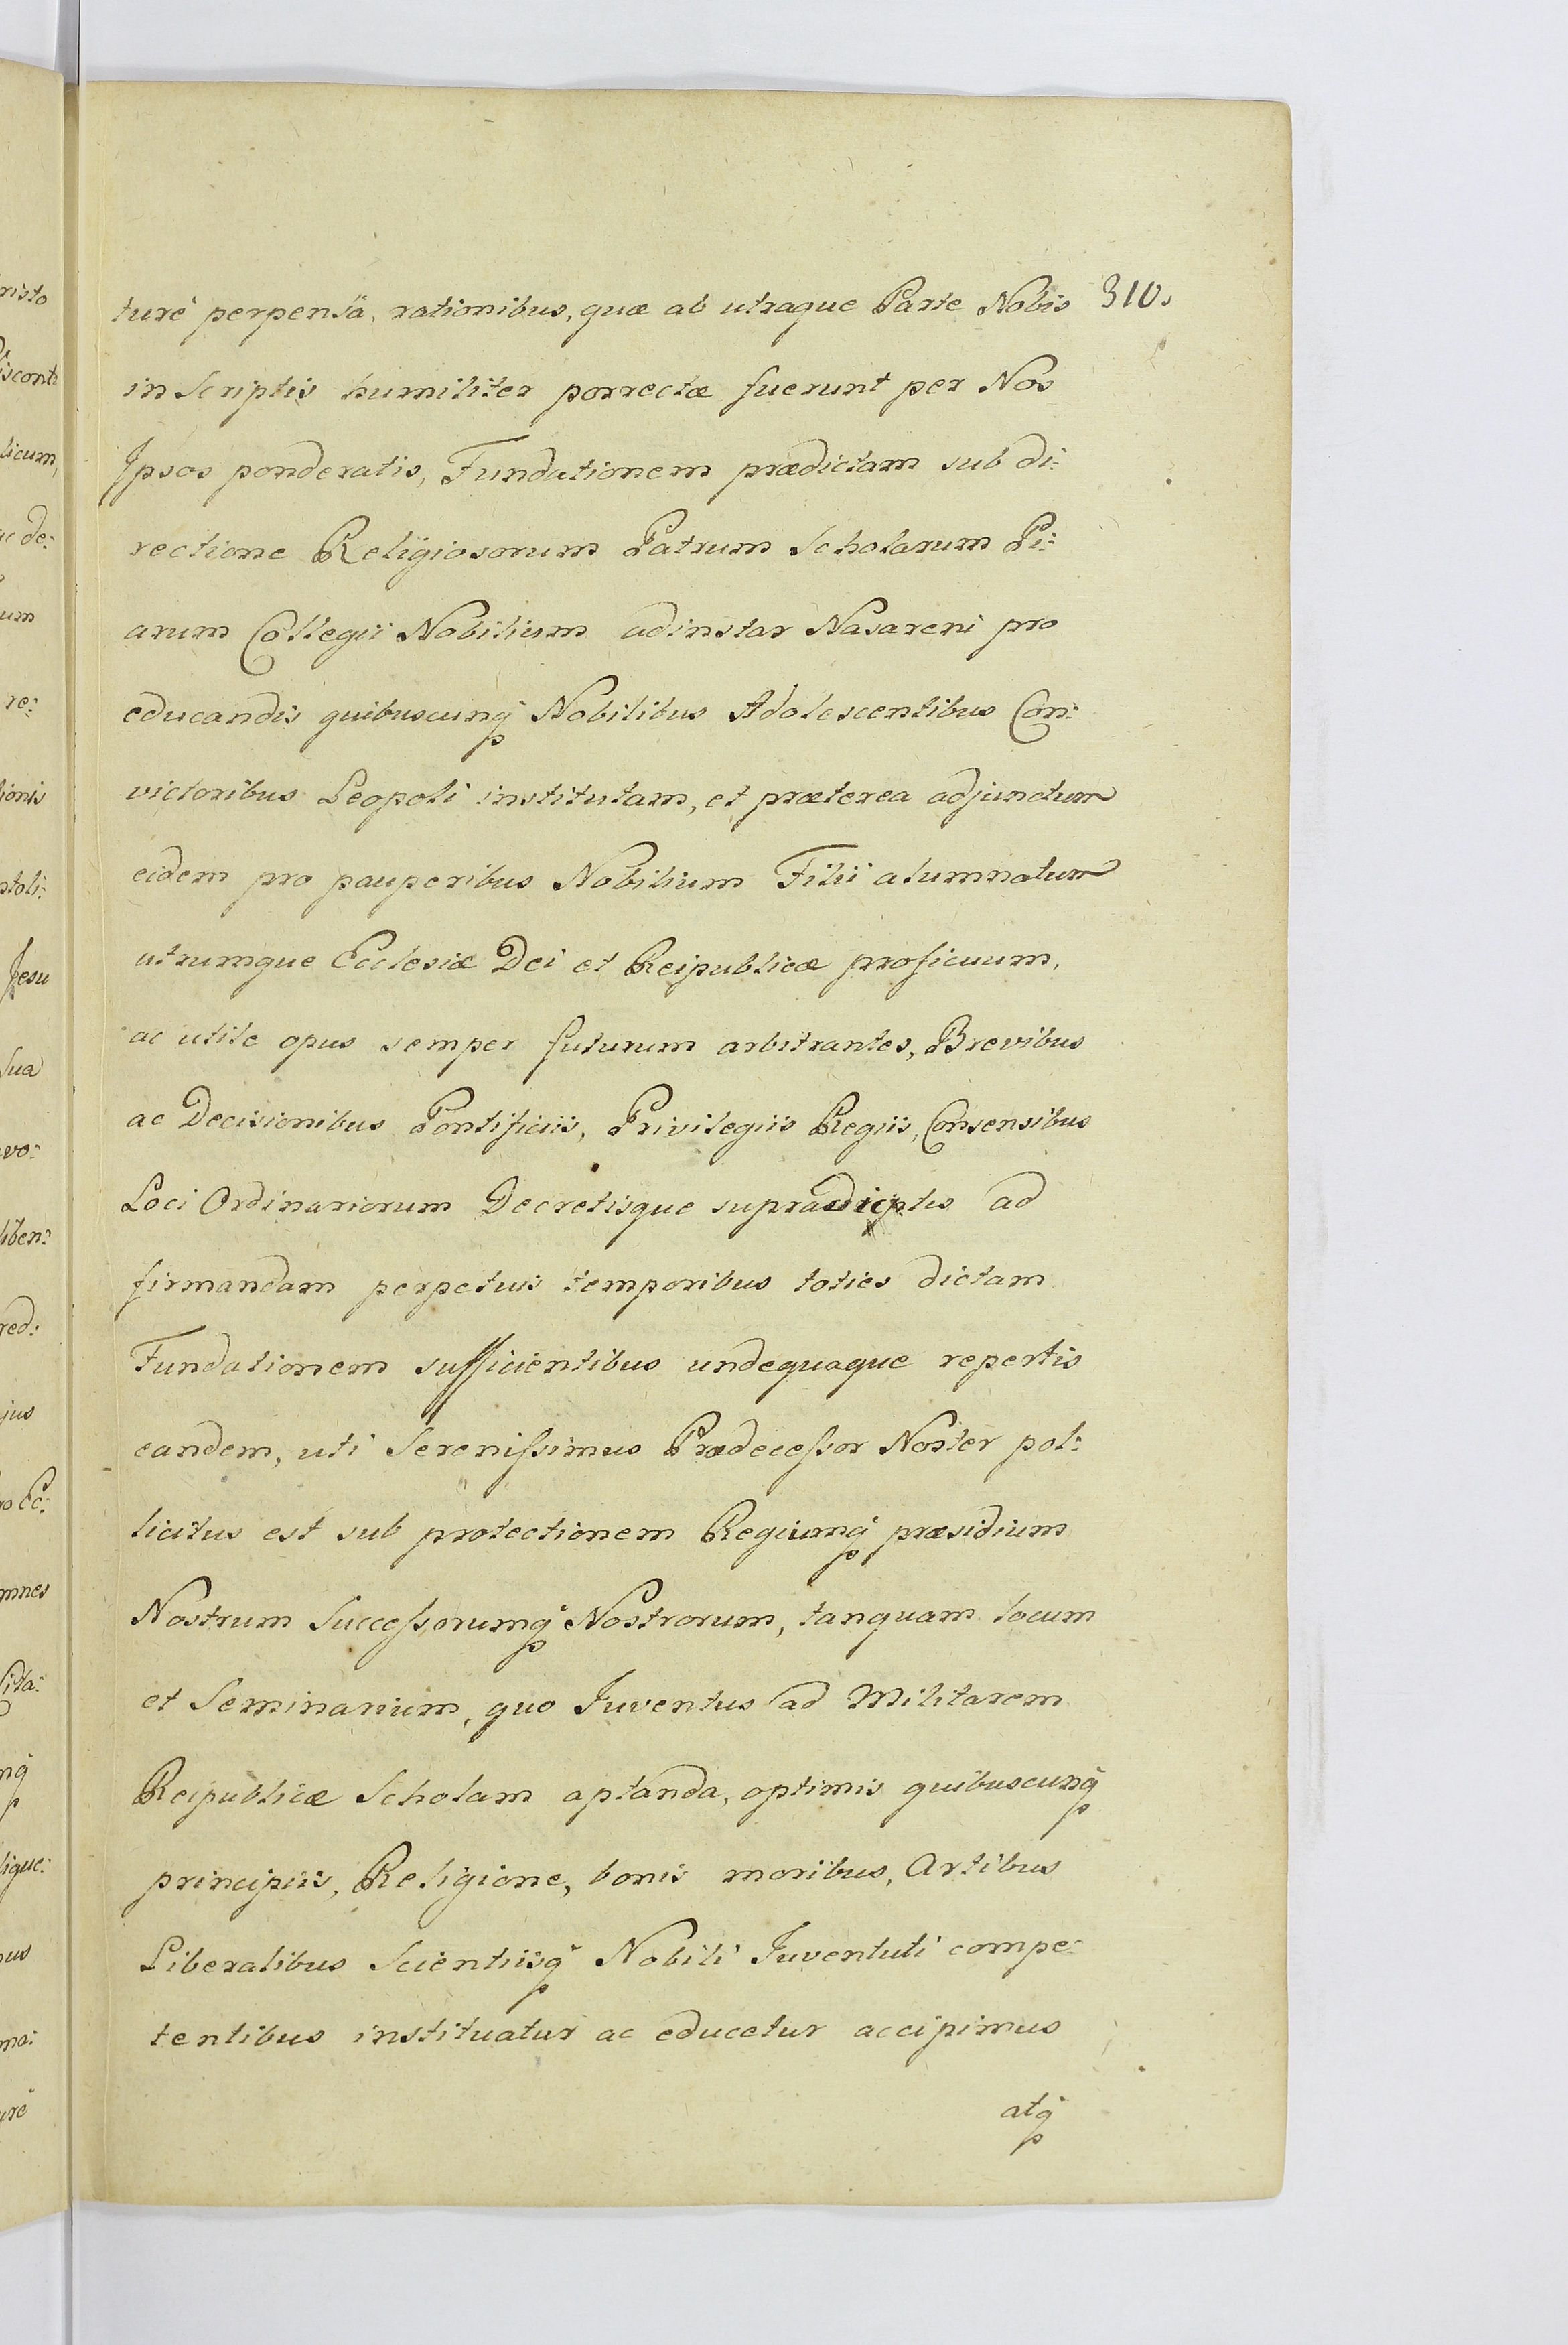 turé perpensâ, rationibus, quæ ab utraque Parte Nobis 310.
in Scriptis humiliter porrectæ fuerunt per Nos
Ipsos ponderatis, Fundationem prædictam sub di:
rectione Religiosorum Patrum Scholarum Pi:
arum Collegii Nobilium adinstar Nasareni pro
educandis quibuscunq Nobilibus Adolescentibus Con:
victoribus Leopoli institutam, et præterea adjunctum
eidem pro pauperibus Nobilium Filii alumnatum
utrumque Ecclesiæ Dei et Reipublicæ proficuum,
ac utile opus semper futurum arbitrantes, Brevibus
ac Decisionibus Pontificiis, Privilegiis Regiis, Consensibus
Loci Ordinariorum Decretisque supradictis ad
firmandam perpetuis temporibus toties dictam
Fundationem sufficientibus undequaque repertis
eandem, uti Serenissimus Prædecessor Noster pol:
licitus est sub protectionem Regiumq præsidium
Nostrum Successorumq Nostrorum, tanquam locum
et Seminarium, quo Juventus ad Militarem
Reipublicæ Scholam aptanda, optimis quibuscunq
principiis, Religione, bonis moribus, Artibus
Liberalibus Scientiisq Nobili Juventuti compe:
tentibus instituatur ac educetur accipimus
atq